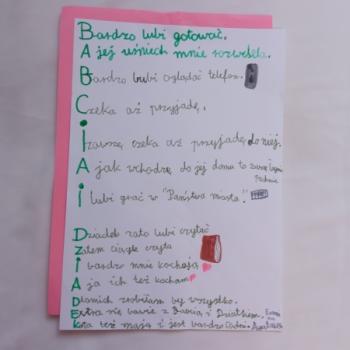 Bardzo lubi gotować.
A jej uśmiech mnie rozwesela.
Bardzo lubi oglądać telefon.
Czeka aż przyjadę.
i zawsze czeka aż przyjadę do niej.
A jak wchodzę do jej domu to zawsze ładnie
Pachnie
i lubi grać w "Państwa miasta".
Dziadek zato lubi czytać
Zatem ciągle czyta
i bardzo mnie kochają
A ja ich też kocham
Dla nich zrobiłam by wszystko.
Extra się bawię z Babcią i Dziadkiem.
Kota też mają i jest bardzo